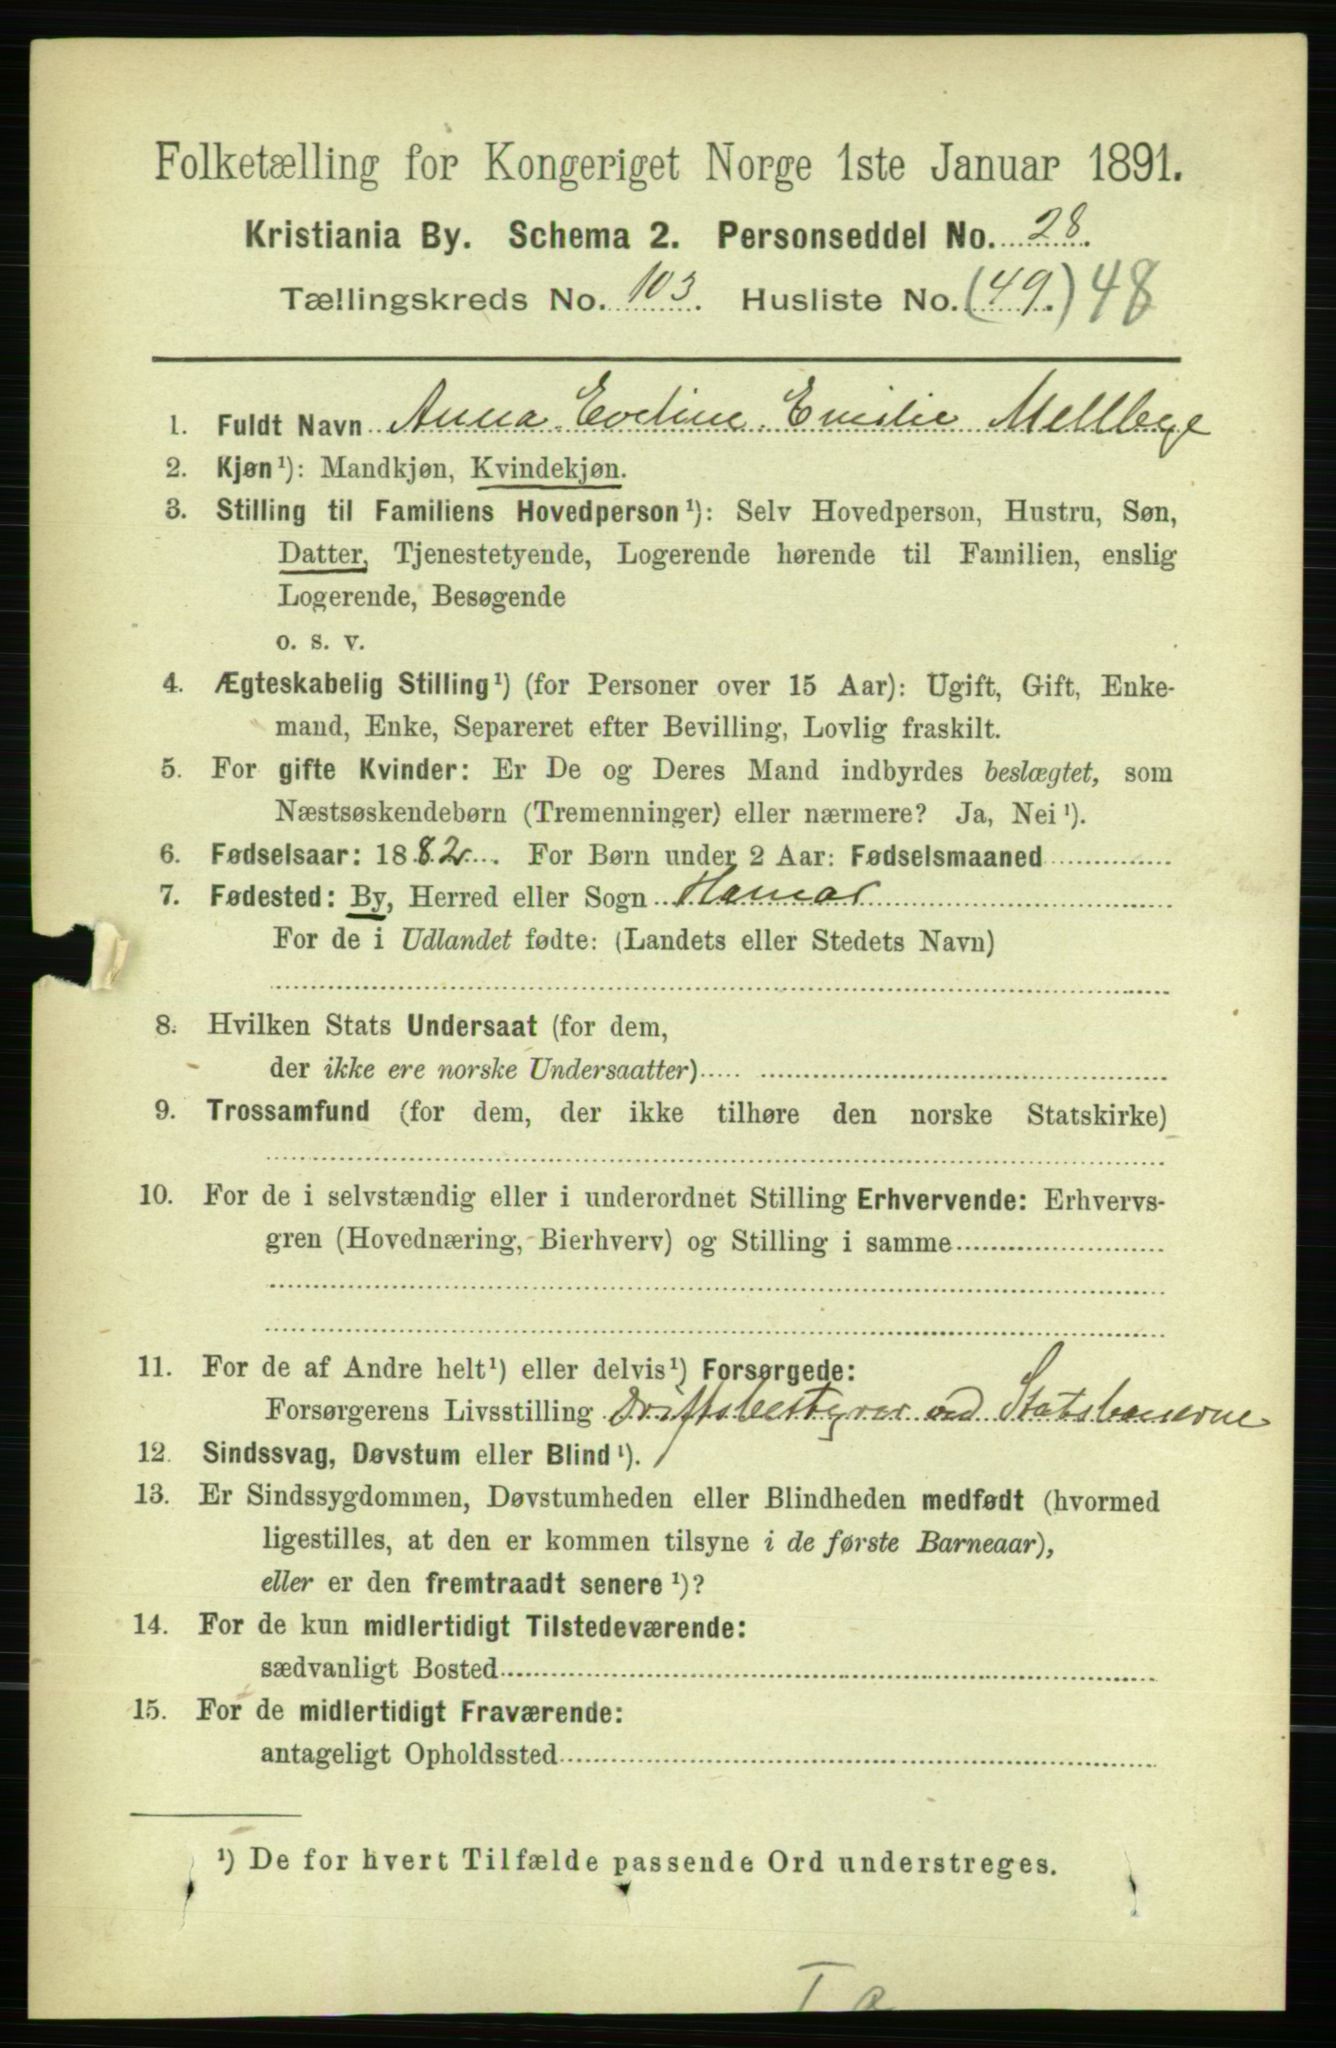 Folketælling for Kongeriget Norge 1ste Januar 1891.
Kristiania By. Schema 2. Personseddel No. 28.
Tællingskreds No. 103. Husliste No. (49.) 48
1. Fuldt Navn Anna Eveline Emilie Mellbye
2. Kjøn¹): Mandkjøn, Kvindekjøn.
3. Stilling til Familiens Hovedperson¹): Selv Hovedperson, Hustru, Søn,
Datter, Tjenestetyende, Logerende hørende til Familien, enslig
Logerende, Besøgende
o. s. v.
4. Ægteskabelig Stilling¹) (for Personer over 15 Aar): Ugift, Gift, Enke-
mand, Enke, Separeret efter Bevilling, Lovlig fraskilt.
5. For gifte Kvinder: Er De og Deres Mand indbyrdes beslægtet, som
Næstsøskendebørn (Tremenninger) eller nærmere? Ja, Nei¹).
6. Fødselsaar: 1882. For Børn under 2 Aar: Fødselsmaaned
7. Fødested: By, Herred eller Sogn Hamar
For de i Udlandet fødte: (Landets eller Stedets Navn)
8. Hvilken Stats Undersaat (for dem,
der ikke ere norske Undersaatter)
9. Trossamfund (for dem, der ikke tilhøre den norske Statskirke)
10. For de i selvstændig eller i underordnet Stilling Erhvervende: Erhvervs-
gren (Hovednæring, Bierhverv) og Stilling i samme
11. For de af Andre helt¹) eller delvis¹) Forsørgede:
Forsørgerens Livsstilling Driftsbestyrer ved Statsbanerne
12. Sindssvag, Døvstum eller Blind¹).
13. Er Sindssygdommen, Døvstumheden eller Blindheden medfødt (hvormed
ligestilles, at den er kommen tilsyne i de første Barneaar),
eller er den fremtraadt senere¹)?
14. For de kun midlertidigt Tilstedeværende:
sædvanligt Bosted
15. For de midlertidigt Fraværende:
antageligt Opholdssted
¹) De for hvert Tilfælde passende Ord understreges.